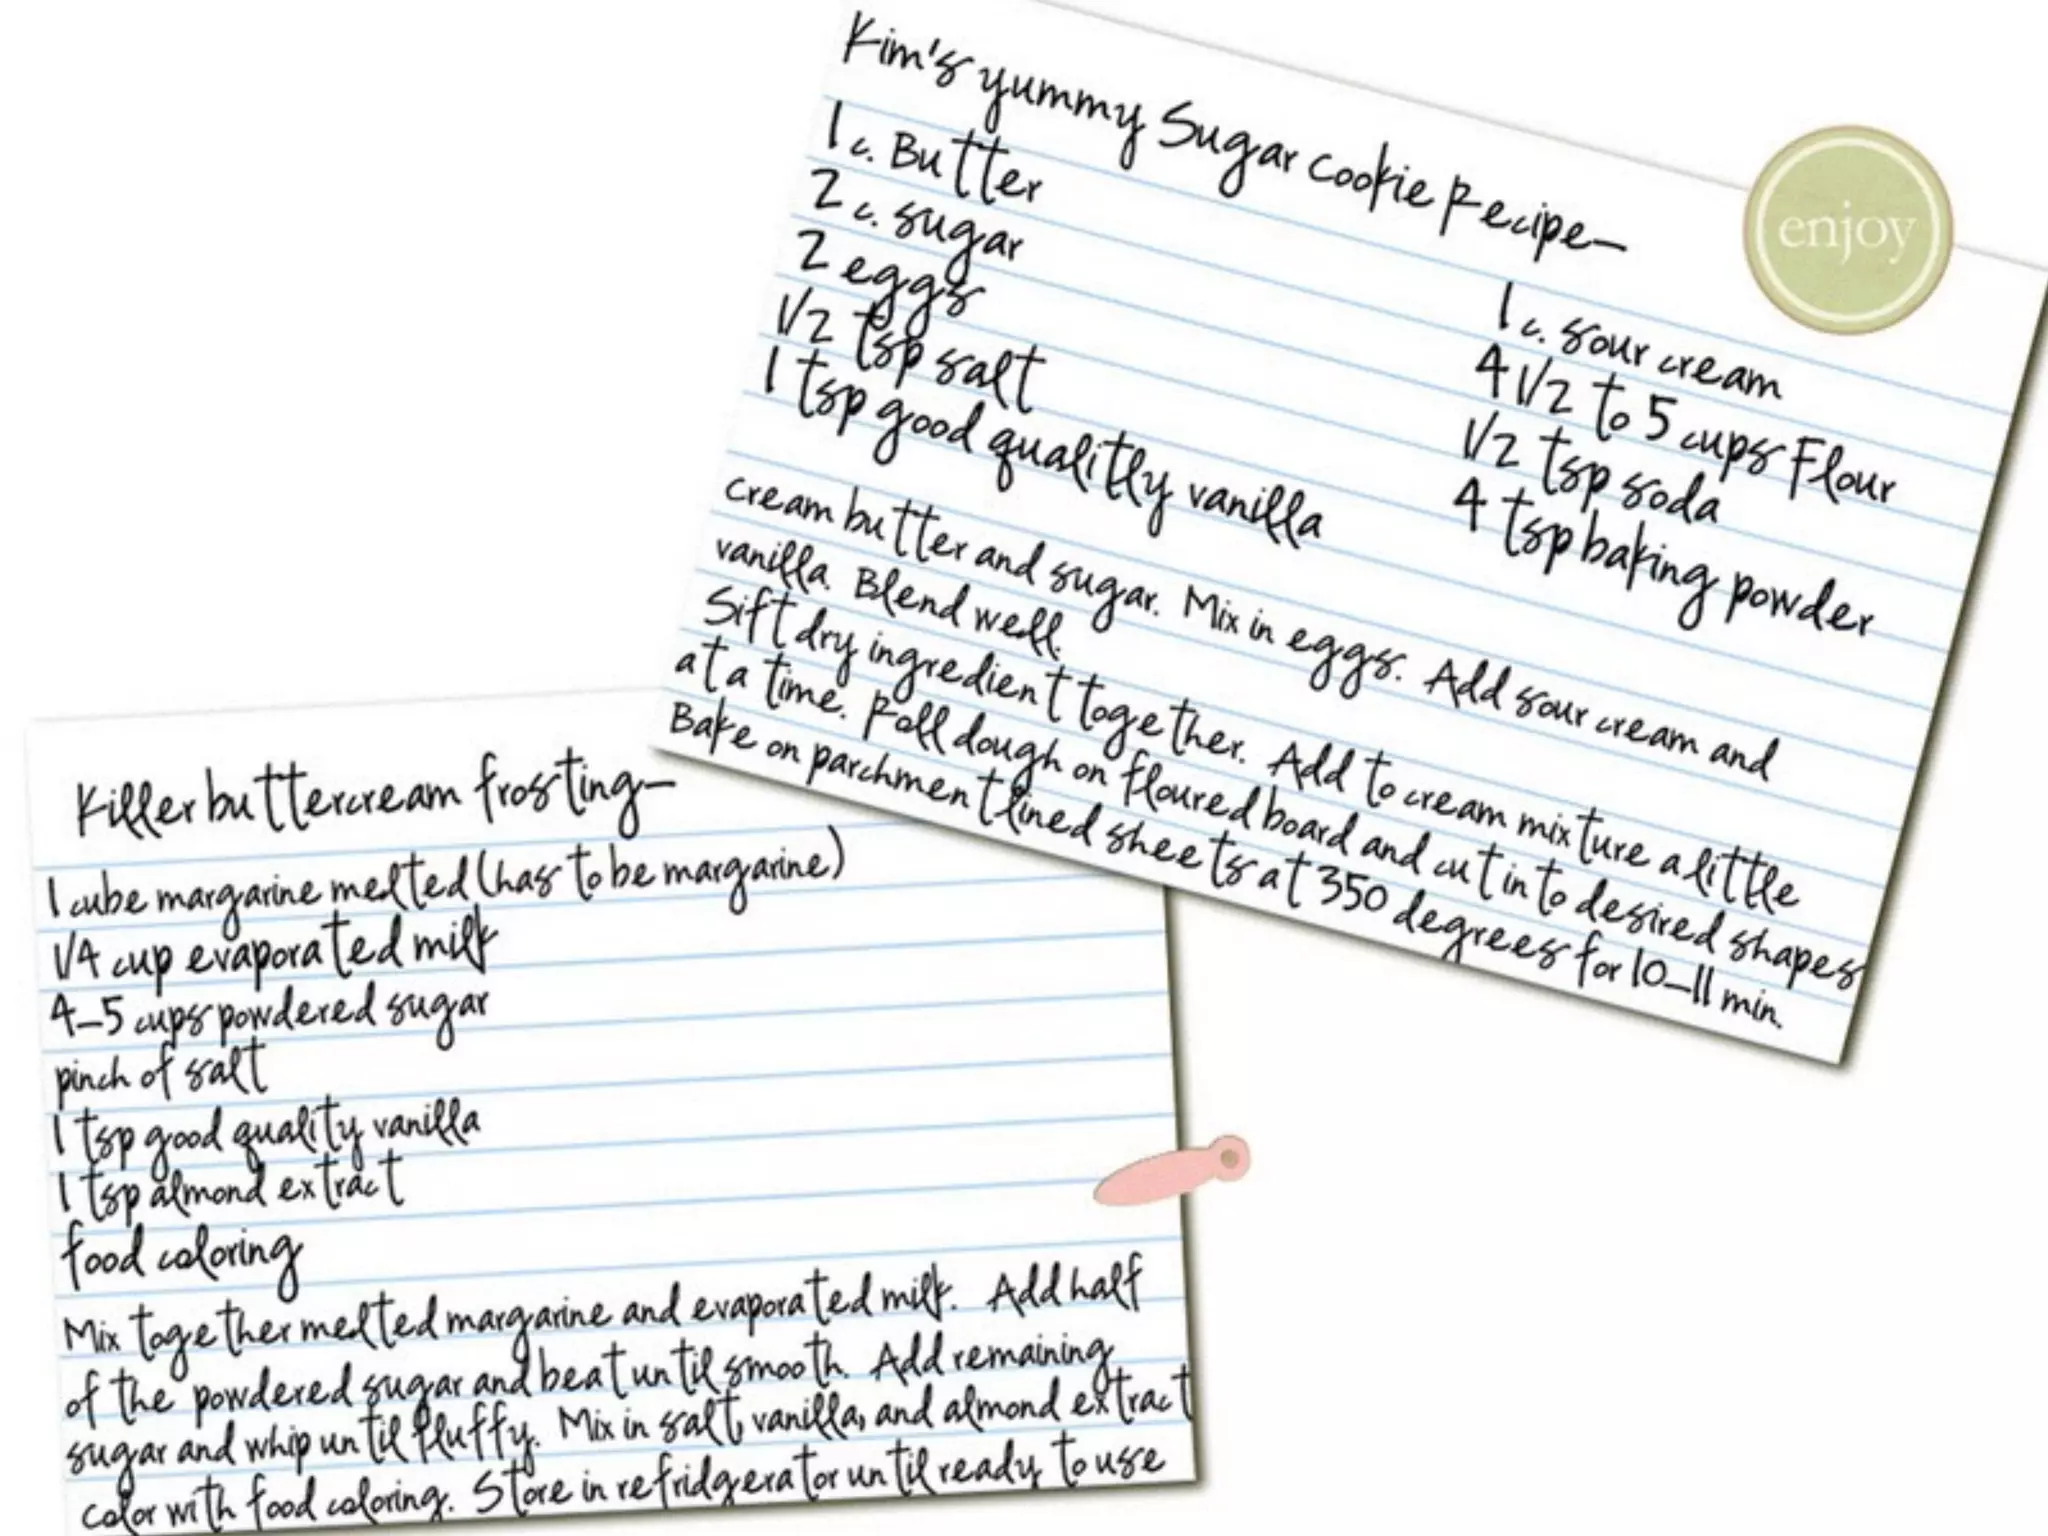 Kim's yummy Sugar Cookie Recipe–
1 c. Butter
2 c. sugar
2 eggs
1/2 tsp salt
1 tsp good qualitly vanilla
1 c. sour cream
4 1/2 to 5 cups Flour
1/2 tsp soda
4 tsp baking powder
cream butter and sugar. Mix in eggs. Add sour cream and
vanilla. Blend well.
Sift dry ingredient together. Add to cream mixture a little
at a time. Roll dough on floured board and cut into desired shapes
Bake on parchment lined sheets at 350 degrees for 10–11 min.
enjoy
Killer buttercream frosting–
1 cube margarine melted (has to be margarine)
1/4 cup evaporated milk
4–5 cups powdered sugar
pinch of salt
1 tsp good quality vanilla
1 tsp almond extract
food coloring
Mix together melted margarine and evaporated milk. Add half
of the powdered sugar and beat until smooth. Add remaining
sugar and whip until fluffy. Mix in salt, vanilla, and almond extract
color with food coloring. Store in refridgerator until ready to use